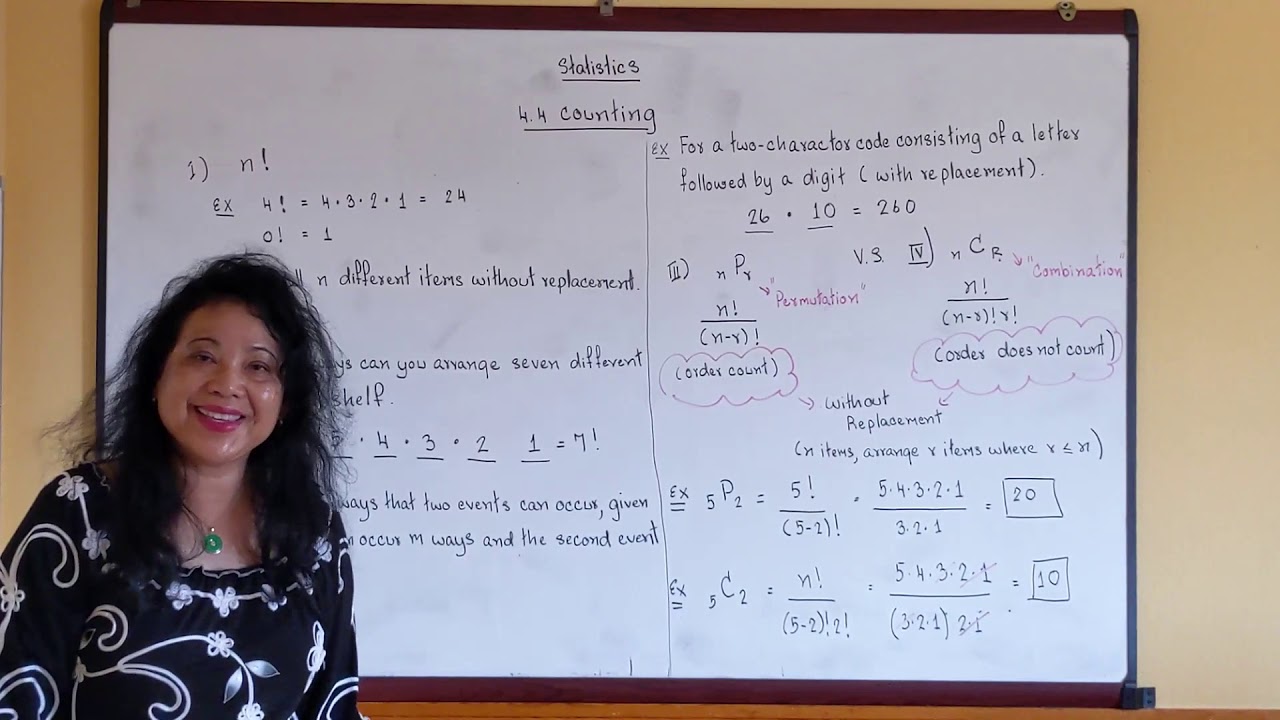 Statistics
4.4 counting
1) n!
Ex 4! = 4·3·2·1 = 24
0! = 1
n different items without replacement.
can you arrange seven different
shelf.
· 4 · 3 · 2 1 = 7!
ways that two events can occur, given
occur m ways and the second event
Ex For a two-charactor code consisting of a letter
followed by a digit (with replacement).
26 · 10 = 260
III) nPr "Permutation"
n!/(n-r)!
(order count)
V.S. IV) nCR "Combination"
n!/(n-r)!r!
(order does not count)
without
Replacement
(n items, arrange r items where r ≤ n)
Ex 5P2 = 5!/(5-2)! = 5·4·3·2·1/3·2·1 = 20
Ex 5C2 = n!/(5-2)!2! = 5·4·3·2·1/(3·2·1)2·1 = 10